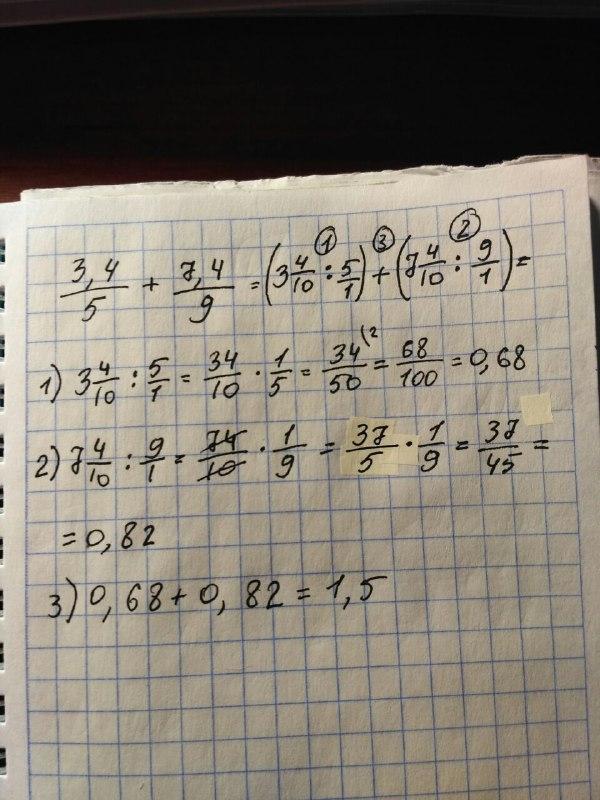 3,4/5 + 7,4/9 = (3 4/10 : 5/1) + (7 4/10 : 9/1) =
① ③ ②
1) 3 4/10 : 5/1 = 34/10 · 1/5 = 34/50 (2 = 68/100 = 0,68
2) 7 4/10 : 9/1 = 74/10 · 1/9 = 37/5 · 1/9 = 37/45 =
= 0,82
3) 0,68 + 0,82 = 1,5